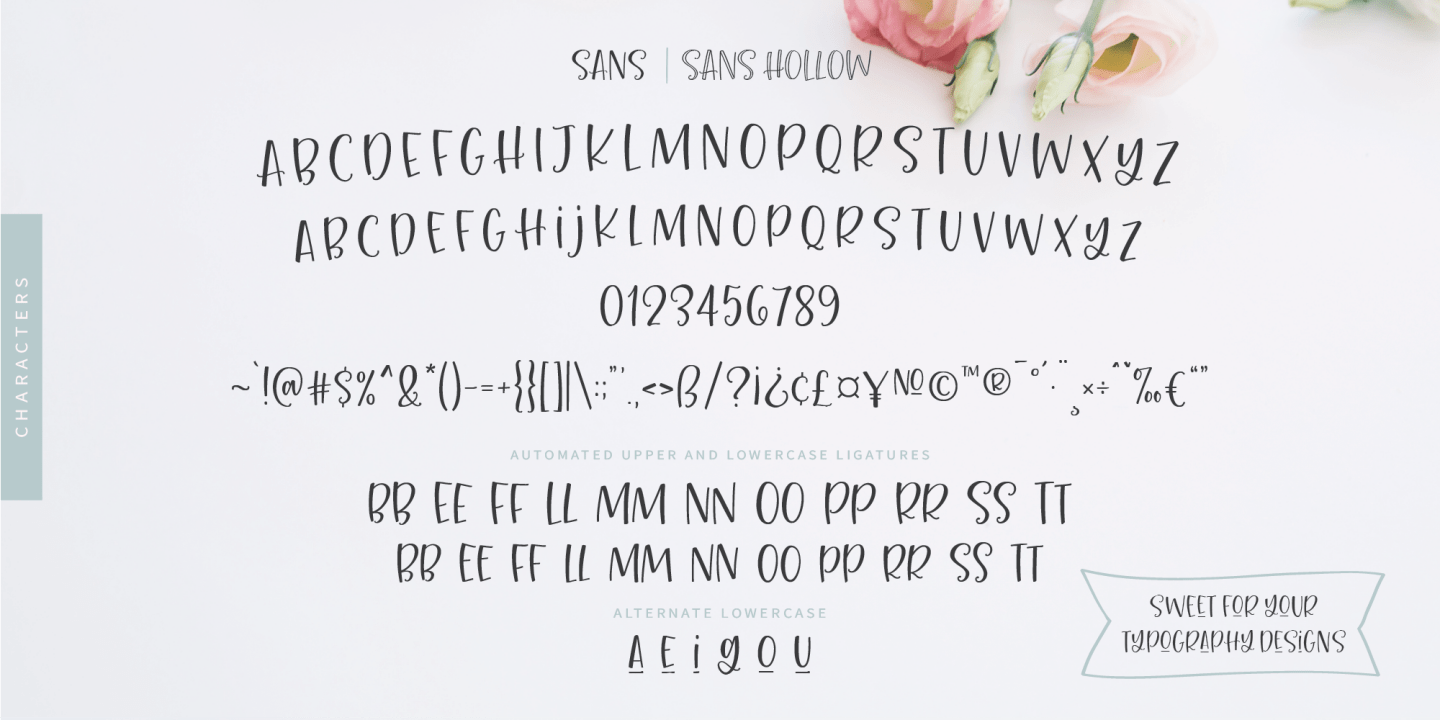 SANS | SANS HOLLOW
ABCDEFGHIJKLMNOPQRSTUVWXYZ
ABCDEFGHijKLMNOPQRSTUVWXYZ
0123456789
~`!@#$%^&*()-=+{}[]|\:;"'.,<>ß/?¡¿¢£¤¥№©™®¯°´·¨¸×÷ˆˇ‰€“”
AUTOMATED UPPER AND LOWERCASE LIGATURES
BB EE FF LL MM NN OO PP RR SS TT
BB EE FF LL MM NN OO PP RR SS TT
ALTERNATE LOWERCASE
A E i y O U
SWEET FOR YOUR
TYPOGRAPHY DESiGNS
CHARACTERS